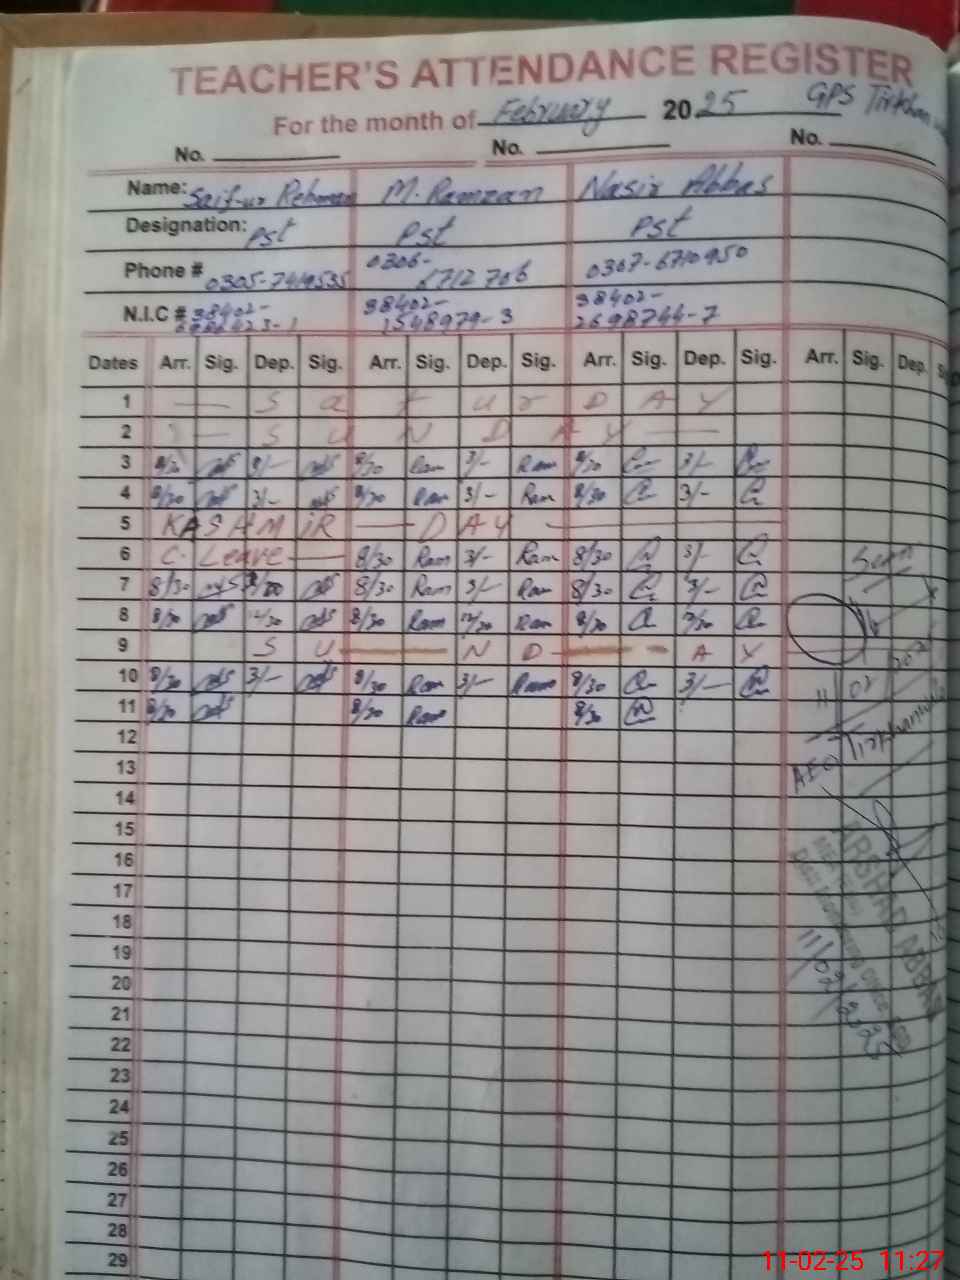 TEACHER'S ATTENDANCE REGISTER
For the month of February 2025 GPS Tirkhan
No. No. No.
Name: Saif-ur Rehman M. Ramzan Nasir Abbas
Designation: PST PST PST
Phone # 0305-7419535 0306-6712706 0307-6710950
N.I.C # 38402- 38402-1548979-3 38402-2698744-7
Dates Arr. Sig. Dep. Sig. Arr. Sig. Dep. Sig. Arr. Sig. Dep. Sig. Arr. Sig. Dep.
1 — S a t u r D A Y
2 — S U N D A Y —
3 8/30 3/- 8/30 Ram 3/- Ram 8/30 3/-
4 8/30 3/- 8/30 Ram 3/- Ram 8/30 3/-
5 KASHMIR — DAY —
6 C. Leave — 8/30 Ram 3/- Ram 8/30 3/- Seen
7 8/30 8/30 Ram 3/- Ram 8/30 3/-
8 8/30 12/30 8/30 Ram 12/30 Ram 8/30
9 S U — N D — A Y
10 8/30 3/- 8/30 Ram 3/- Ram 8/30 3/-
11 8/30 8/30 Ram 8/30
12
13
14
15
16
17
18
19
20
21
22
23
24
25
26
27
28
29
11 02
AEO Tirkhanwala
ARSHAD ABBAS
11/02/2025
11-02-25 11:27